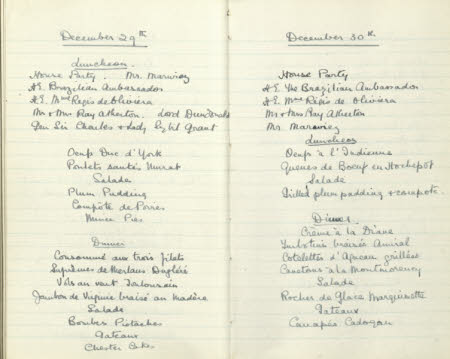 December 29th
Luncheon.
House Party. Mr. Marwiez
H.E. Brazilian Ambassador
H.E. Mme Régis de Oliviera
Mr & Mrs Ray Atherton. Lord
Gen Sir Charles & Lady Sybil Grant
Oeufs Duc d'York
Poulets sautés Murat
Salade
Plum Pudding
Compôte de Poires
Mince Pies
Dinner
Consommé aux trois filets
Suprêmes de Merlans Dugléré
Vol au vent Toulousain
Jambon de Virginie braisé au Madère
Salade
Bombes Pistaches
Gateaux
Chester Cakes
December 30th
House Party
H.E. The Brazilian Ambassador
H.E. Mme Régis de Oliviera
Mr & Mrs Ray Atherton
Mr. Marwiez
Luncheon
Oeufs à l'Indienne
Queues de Boeuf en Hochepot
Salade
Grilled plum pudding & compote.
Dinner.
Crème à la Diane
braisée Amiral
Cotelettes d'Agneau grillées
Canetons à la Montmorency
Salade
Rocher de Glace Marquisette
Gateaux
Canapés Cadogan